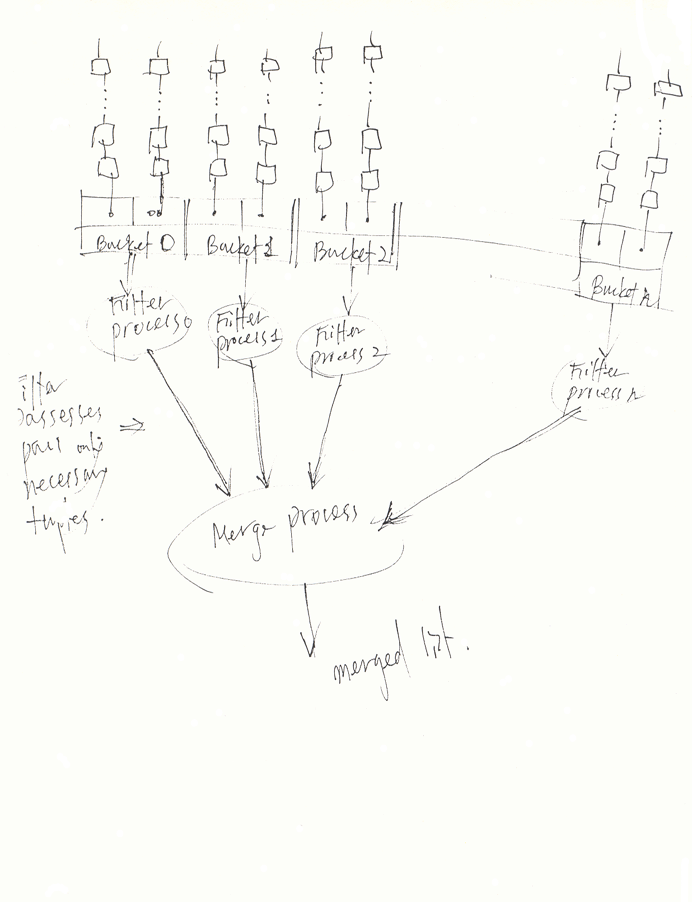 Bucket 0
Bucket 1
Bucket 2
Bucket n
Filter
process 0
Filter
process 1
Filter
process 2
Filter
process n
necessary
tuples.
Merge process
merged list.